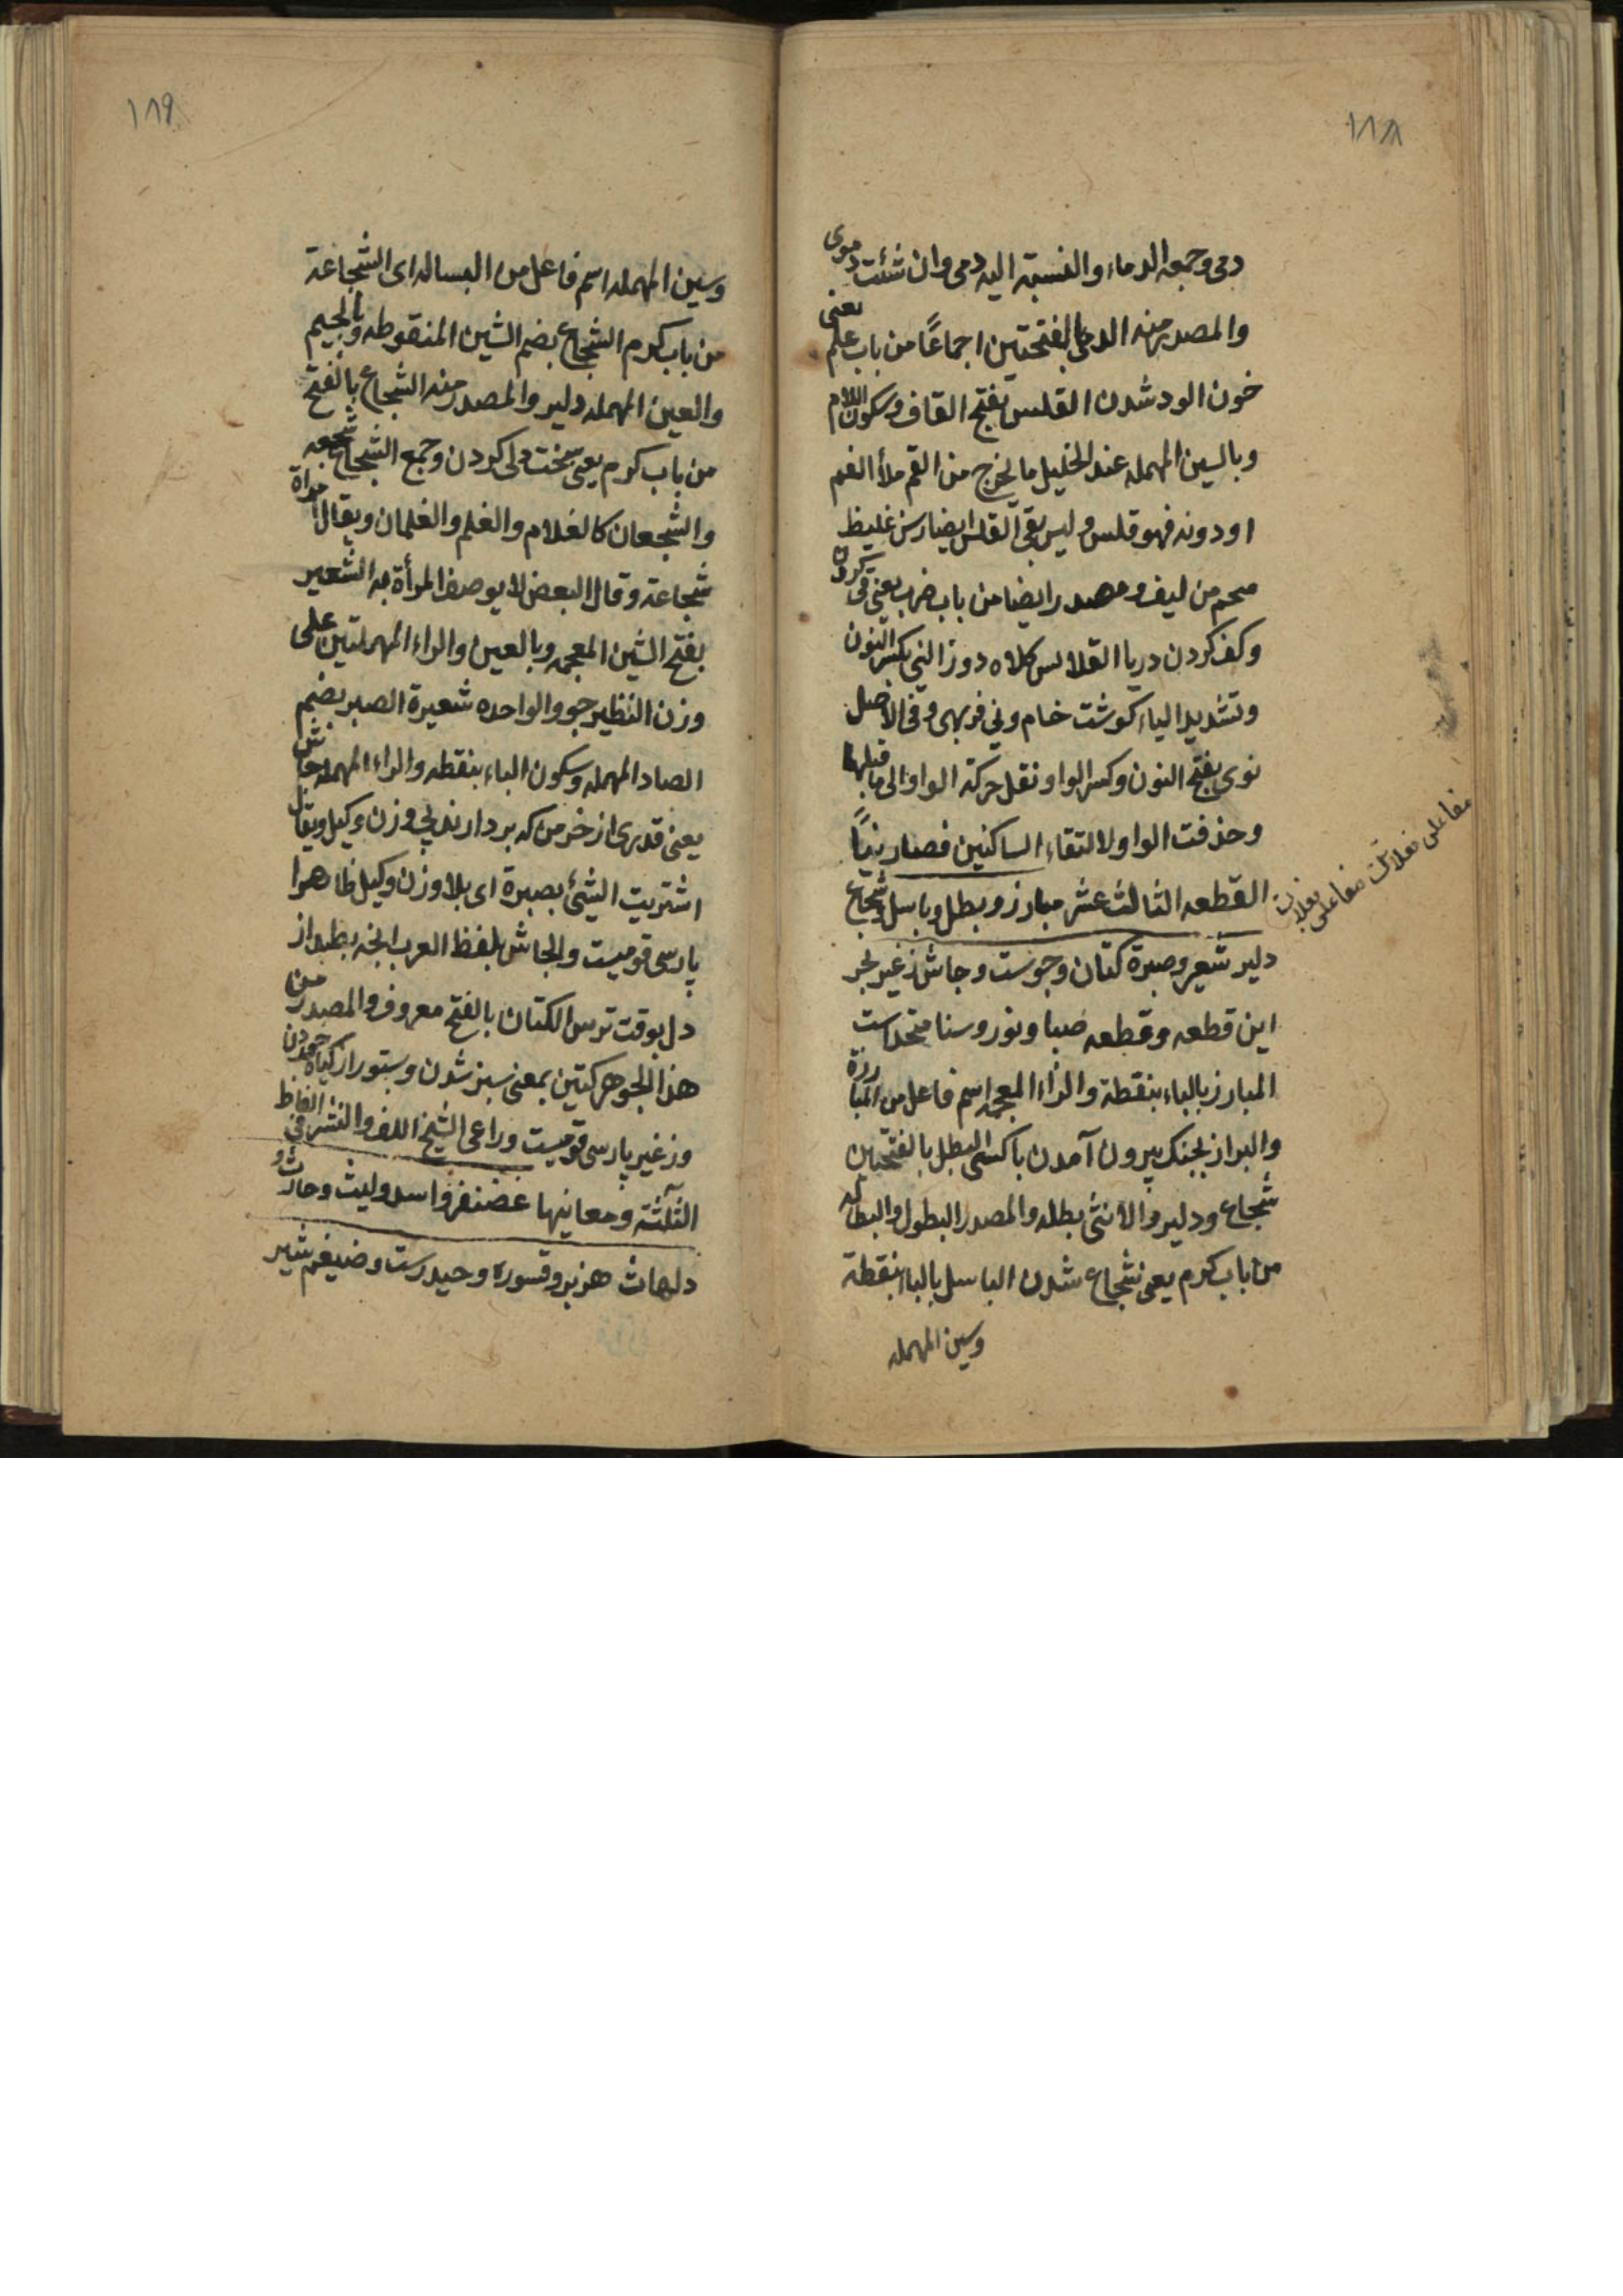 ۱۸۸
دمی وجمعه الدماء والنسبة الیه دمی وان شئت دموی
والمصدر منه الدمی بالفتحتین اجماعًا من باب علم یعنی
خون الود شدن القلس بفتح القاف وسکون اللام
وبالسین المهمله عند الخلیل ما یخرج من الفم ملأ الفم
او دونه فهو قلس ولیس بقی القلس ایضا رسن غلیظ
من لیف ومصدر ایضا من باب ضرب یعنی قی کردن
وکف کردن دریا القلاس کلاه دوز النی بکسر النون
وتشدید الیاء کوشت خام ونی فربهی وفی الاصل
نوی بفتح النون وکسر الواو نقل حرکة الواو الی ما قبلها
وحذفت الواو لالتقاء الساکنین فصار نیًا
القطعه الثالث عشر مبارز وبطل وباسل وشجاع
دلیر شعیر وصبرة کتان وجوست وجاش زغیر بجر
این قطعه وقطعه ضیا ونور وسنا متحداست
المبارز بالباء بنقطة والزاء المعجمه اسم فاعل من المبارزة
والبراز بجنک بیرون آمدن با کسی البطل بالفتحتین
شجاع ودلیر والانثی بطله والمصدر البطول والبطاله
من باب کرم یعنی شجاع شدن الباسل بالباء بنقطة
وسین المهمله
مفاعلن فعلاتن مفاعلن فعلات
۱۸۹
وسین المهمله اسم فاعل من البساله ای الشجاعة
من باب کرم الشجاع بضم الشین المنقوطه وبالجیم
والعین المهمله دلیر والمصدر منه الشجاع بالفتح
من باب کرم یعنی سخت دلی کردن وجمع الشجاع شجعه
والشجعان کالغلام والغلم والغلمان ویقال امراة
شجاعة وقال البعض لا یوصف المرأة به الشعیر
بفتح الشین المعجمه وبالعین والراء المهملتین علی
وزن النظیر جو والواحده شعیرة الصبر بضم
الصاد المهمله وسکون الباء بنقطه والراء المهمله جاش
یعنی قدری از خرمن که بر دارند بی وزن وکیل ویقال
اشتریت الشئ بصبرة ای بلا وزن وکیل ظاهرا
پارسی قومیست والجاش بلفظ العرب انچه بطپد از
دل بوقت ترس الکتان بالفتح معروف والمصدر من
هذا الجوهر کتین بمعنی سبز شدن وستور از کیاه خوردن
وزغیر پارسی قومیست وراعی الشیخ اللف والنشر فی الفاظ
الثلثة ومعانیها غضنفر واسد ولیث وحارث و
دلهاث هزبر وقسوره وحیدرست وضیغم شیر